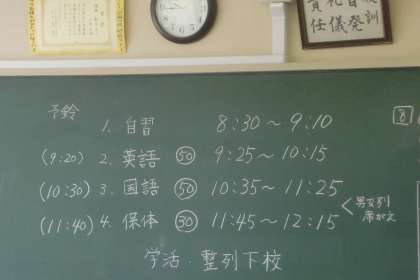 責任 礼儀 自発
校訓
予鈴
1. 自習 8:30～9:10
(9:20) 2. 英語 50 9:25～10:15
(10:30) 3. 国語 50 10:35～11:25
(11:40) 4. 保体 30 11:45～12:15
男女別
席がえ
学活・整列下校